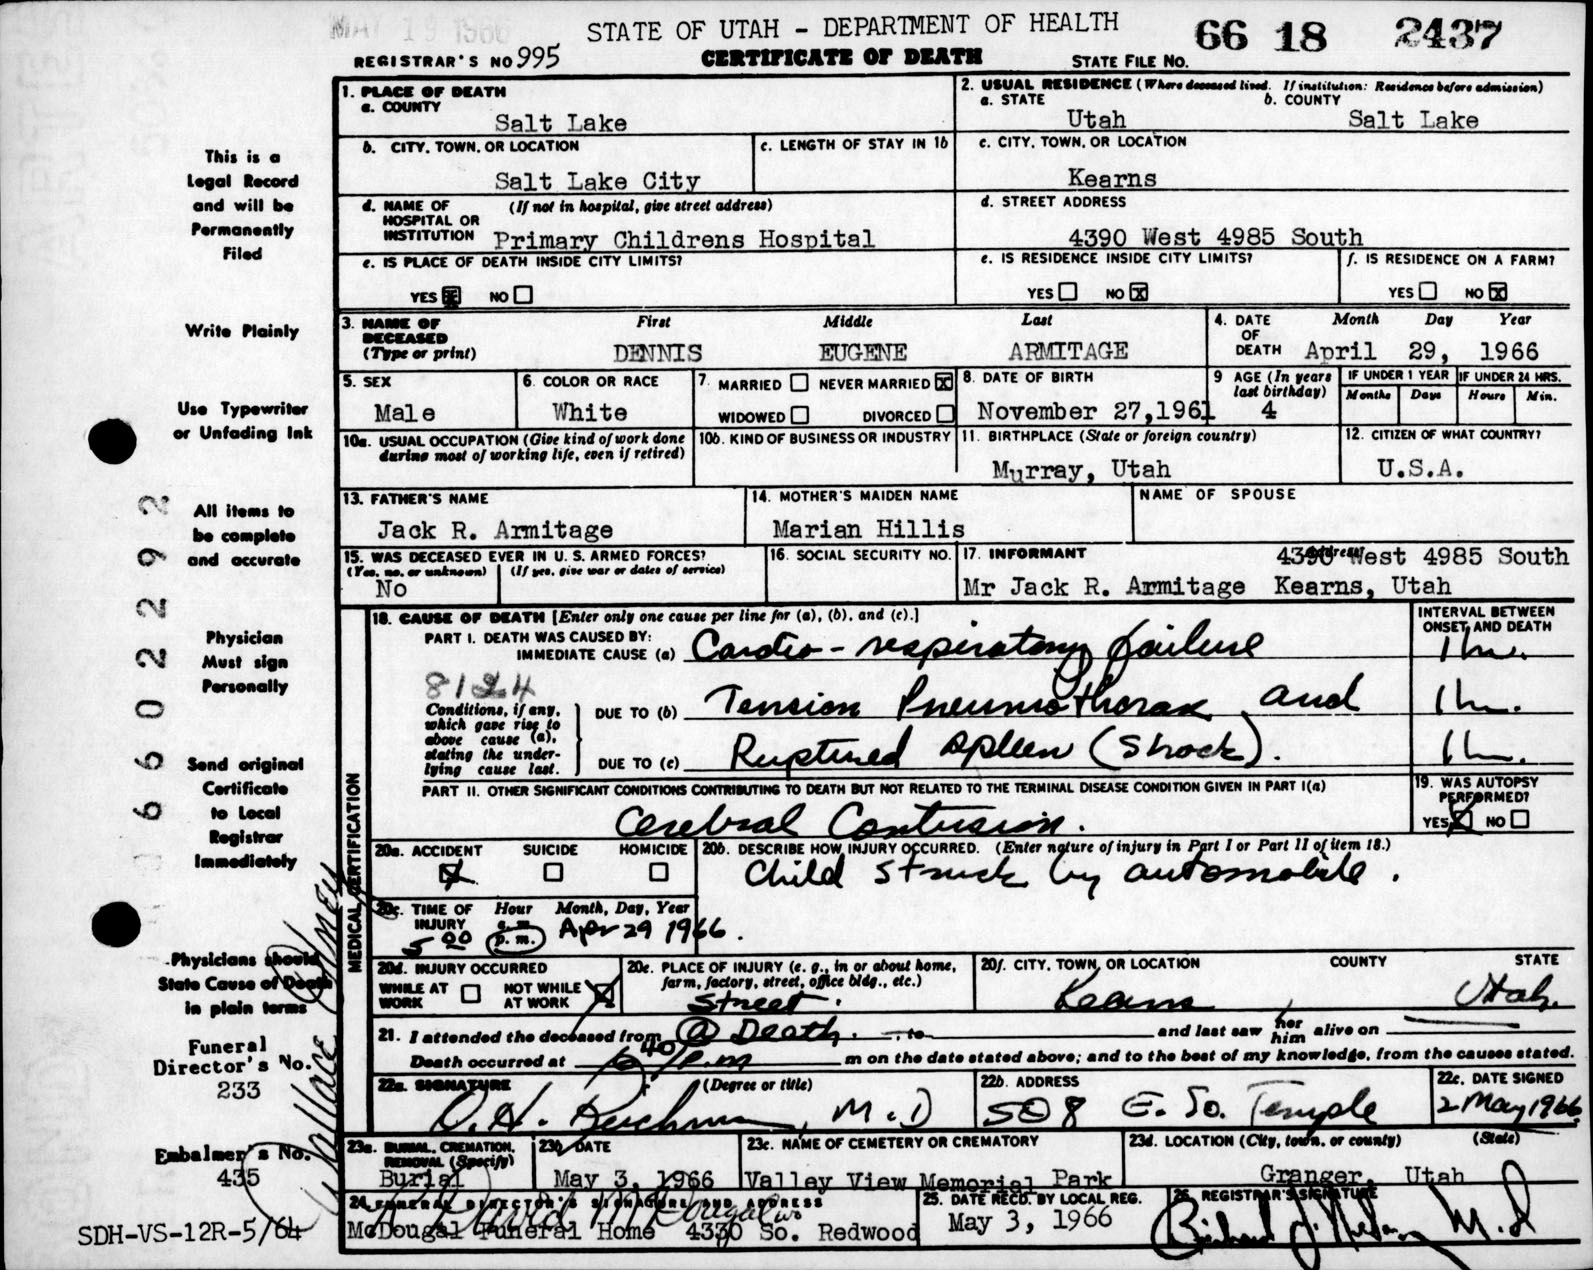 MAY 19 1966
STATE OF UTAH - DEPARTMENT OF HEALTH
66 18 2437
REGISTRAR'S NO 995
CERTIFICATE OF DEATH
STATE FILE NO.
This is a
Legal Record
and will be
Permanently
Filed
Write Plainly
Use Typewriter
or Unfading Ink
All items to
be complete
and accurate
Physician
Must sign
Personally
Send original
Certificate
to Local
Registrar
Immediately
Physicians should
State Cause of Death
in plain terms
Funeral
Director's No.
233
Embalmer's No.
435
SDH-VS-12R-5/64
66022292
Wallace
MEDICAL CERTIFICATION
1. PLACE OF DEATH
a. COUNTY
Salt Lake
2. USUAL RESIDENCE (Where deceased lived. If institution: Residence before admission)
a. STATE b. COUNTY
Utah Salt Lake
b. CITY, TOWN, OR LOCATION
Salt Lake City
c. LENGTH OF STAY IN 1b
c. CITY, TOWN, OR LOCATION
Kearns
d. NAME OF (If not in hospital, give street address)
HOSPITAL OR
INSTITUTION Primary Childrens Hospital
d. STREET ADDRESS
4390 West 4985 South
e. IS PLACE OF DEATH INSIDE CITY LIMITS?
YES X NO
e. IS RESIDENCE INSIDE CITY LIMITS?
YES NO X
f. IS RESIDENCE ON A FARM?
YES NO X
3. NAME OF First Middle Last
DECEASED
(Type or print) DENNIS EUGENE ARMITAGE
4. DATE Month Day Year
OF
DEATH April 29, 1966
5. SEX
Male
6. COLOR OR RACE
White
7. MARRIED NEVER MARRIED X
WIDOWED DIVORCED
8. DATE OF BIRTH
November 27,1961
9 AGE (In years
last birthday)
4
IF UNDER 1 YEAR IF UNDER 24 HRS.
Months Days Hours Min.
10a. USUAL OCCUPATION (Give kind of work done
during most of working life, even if retired)
10b. KIND OF BUSINESS OR INDUSTRY
11. BIRTHPLACE (State or foreign country)
Murray, Utah
12. CITIZEN OF WHAT COUNTRY?
U.S.A.
13. FATHER'S NAME
Jack R. Armitage
14. MOTHER'S MAIDEN NAME
Marian Hillis
NAME OF SPOUSE
15. WAS DECEASED EVER IN U. S. ARMED FORCES?
(Yes, no, or unknown) (If yes, give war or dates of service)
No
16. SOCIAL SECURITY NO.
17. INFORMANT Address 4390 West 4985 South
Mr Jack R. Armitage Kearns, Utah
18. CAUSE OF DEATH [Enter only one cause per line for (a), (b), and (c).]
PART I. DEATH WAS CAUSED BY:
IMMEDIATE CAUSE (a) Cardio-respiratory failure
INTERVAL BETWEEN
ONSET AND DEATH
1 hr.
8124
Conditions, if any,
which gave rise to
above cause (a),
stating the under-
lying cause last.
DUE TO (b) Tension Pneumothorax and
1 hr.
DUE TO (c) Ruptured spleen (shock).
1 hr.
PART II. OTHER SIGNIFICANT CONDITIONS CONTRIBUTING TO DEATH BUT NOT RELATED TO THE TERMINAL DISEASE CONDITION GIVEN IN PART I(a)
Cerebral Contusion.
19. WAS AUTOPSY
PERFORMED?
YES X NO
20a. ACCIDENT SUICIDE HOMICIDE
X
20b. DESCRIBE HOW INJURY OCCURRED. (Enter nature of injury in Part I or Part II of item 18.)
Child struck by automobile.
20c. TIME OF Hour Month, Day, Year
INJURY a. m.
5 00 p. m. Apr 29 1966.
20d. INJURY OCCURRED
WHILE AT NOT WHILE X
WORK AT WORK
20e. PLACE OF INJURY (e. g., in or about home,
farm, factory, street, office bldg., etc.)
Street.
20f. CITY, TOWN, OR LOCATION COUNTY STATE
Kearns, Utah.
21. I attended the deceased from @ Death. to and last saw her him alive on
Death occurred at 6 40 p.m m on the date stated above; and to the best of my knowledge, from the causes stated.
22a. SIGNATURE (Degree or title)
M.D
22b. ADDRESS
508 E. So. Temple
22c. DATE SIGNED
2 May 1966
23a. BURIAL, CREMATION,
REMOVAL (Specify)
Burial
23b. DATE
May 3, 1966
23c. NAME OF CEMETERY OR CREMATORY
Valley View Memorial Park
23d. LOCATION (City, town, or county) (State)
Granger, Utah
24. FUNERAL DIRECTOR'S SIGNATURE AND ADDRESS
David McDougal
McDougal Funeral Home 4330 So. Redwood
25. DATE REC'D. BY LOCAL REG.
May 3, 1966
26. REGISTRAR'S SIGNATURE
M.D